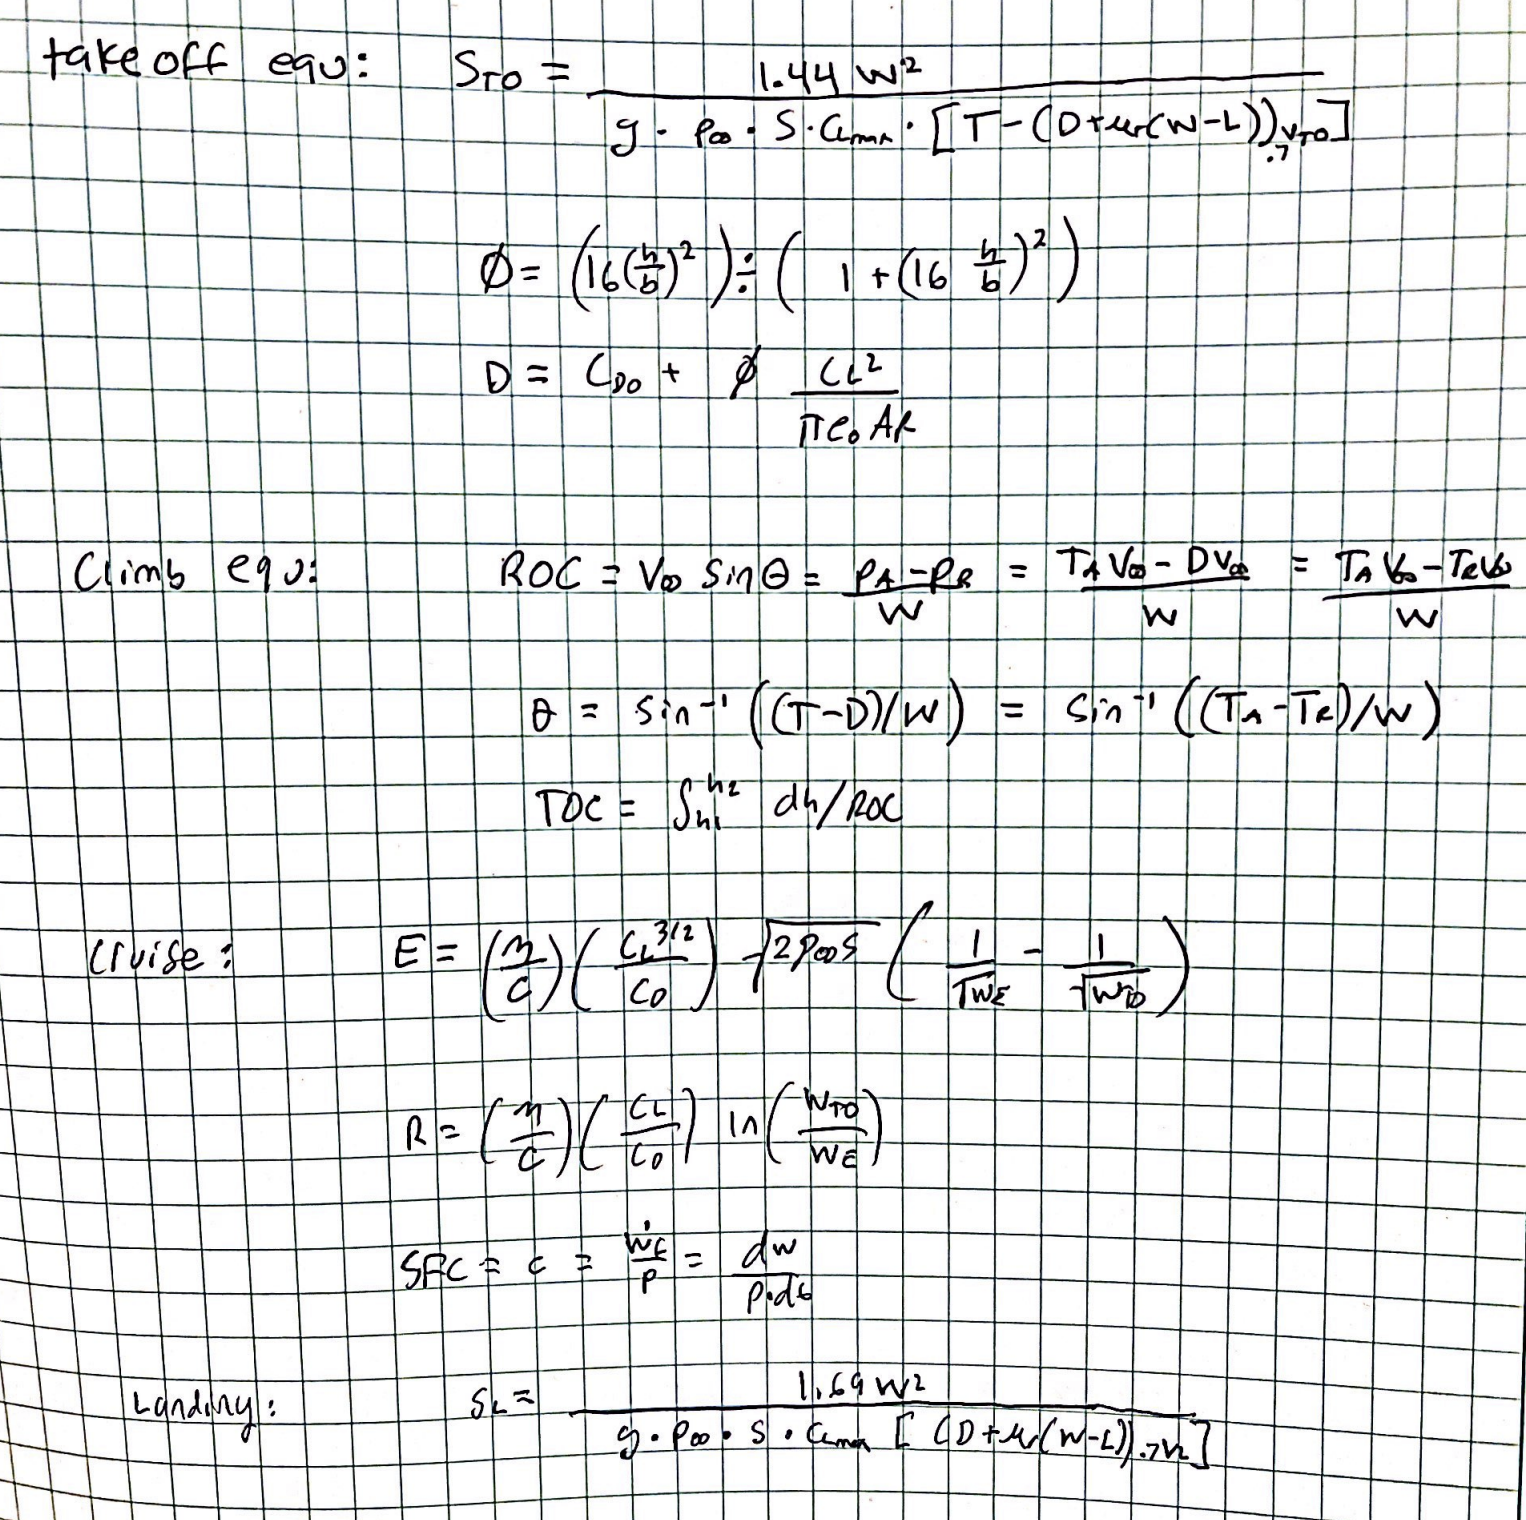 take off equ: S_TO = 1.44 W² / g · ρ∞ · S · C_Lmax · [T - (D + μr(W - L)).7 V_TO]
Ø = (16(h/b)²) ÷ (1 + (16 h/b)²)
D = C_D0 + ø C_L² / π e₀ AR
Climb equ: ROC = V∞ sinθ = P_A - P_R / W = T_A V∞ - D V∞ / W = T_A V∞ - T_R V∞ / W
θ = sin⁻¹ ((T-D)/W) = sin⁻¹ ((T_A - T_R)/W)
TOC = ∫h₁^h₂ dh/ROC
Cruise: E = (η/c) (C_L^3/2 / C_D) √2ρ∞S (1/√W_E - 1/√W_TO)
R = (η/c) (C_L/C_D) ln (W_TO/W_E)
SFC = c = ẇ_f/P = dw/P·dt
Landing: S_L = 1.69 W² / g · ρ∞ · S · C_Lmax [(D + μr(W - L)).7V_L]